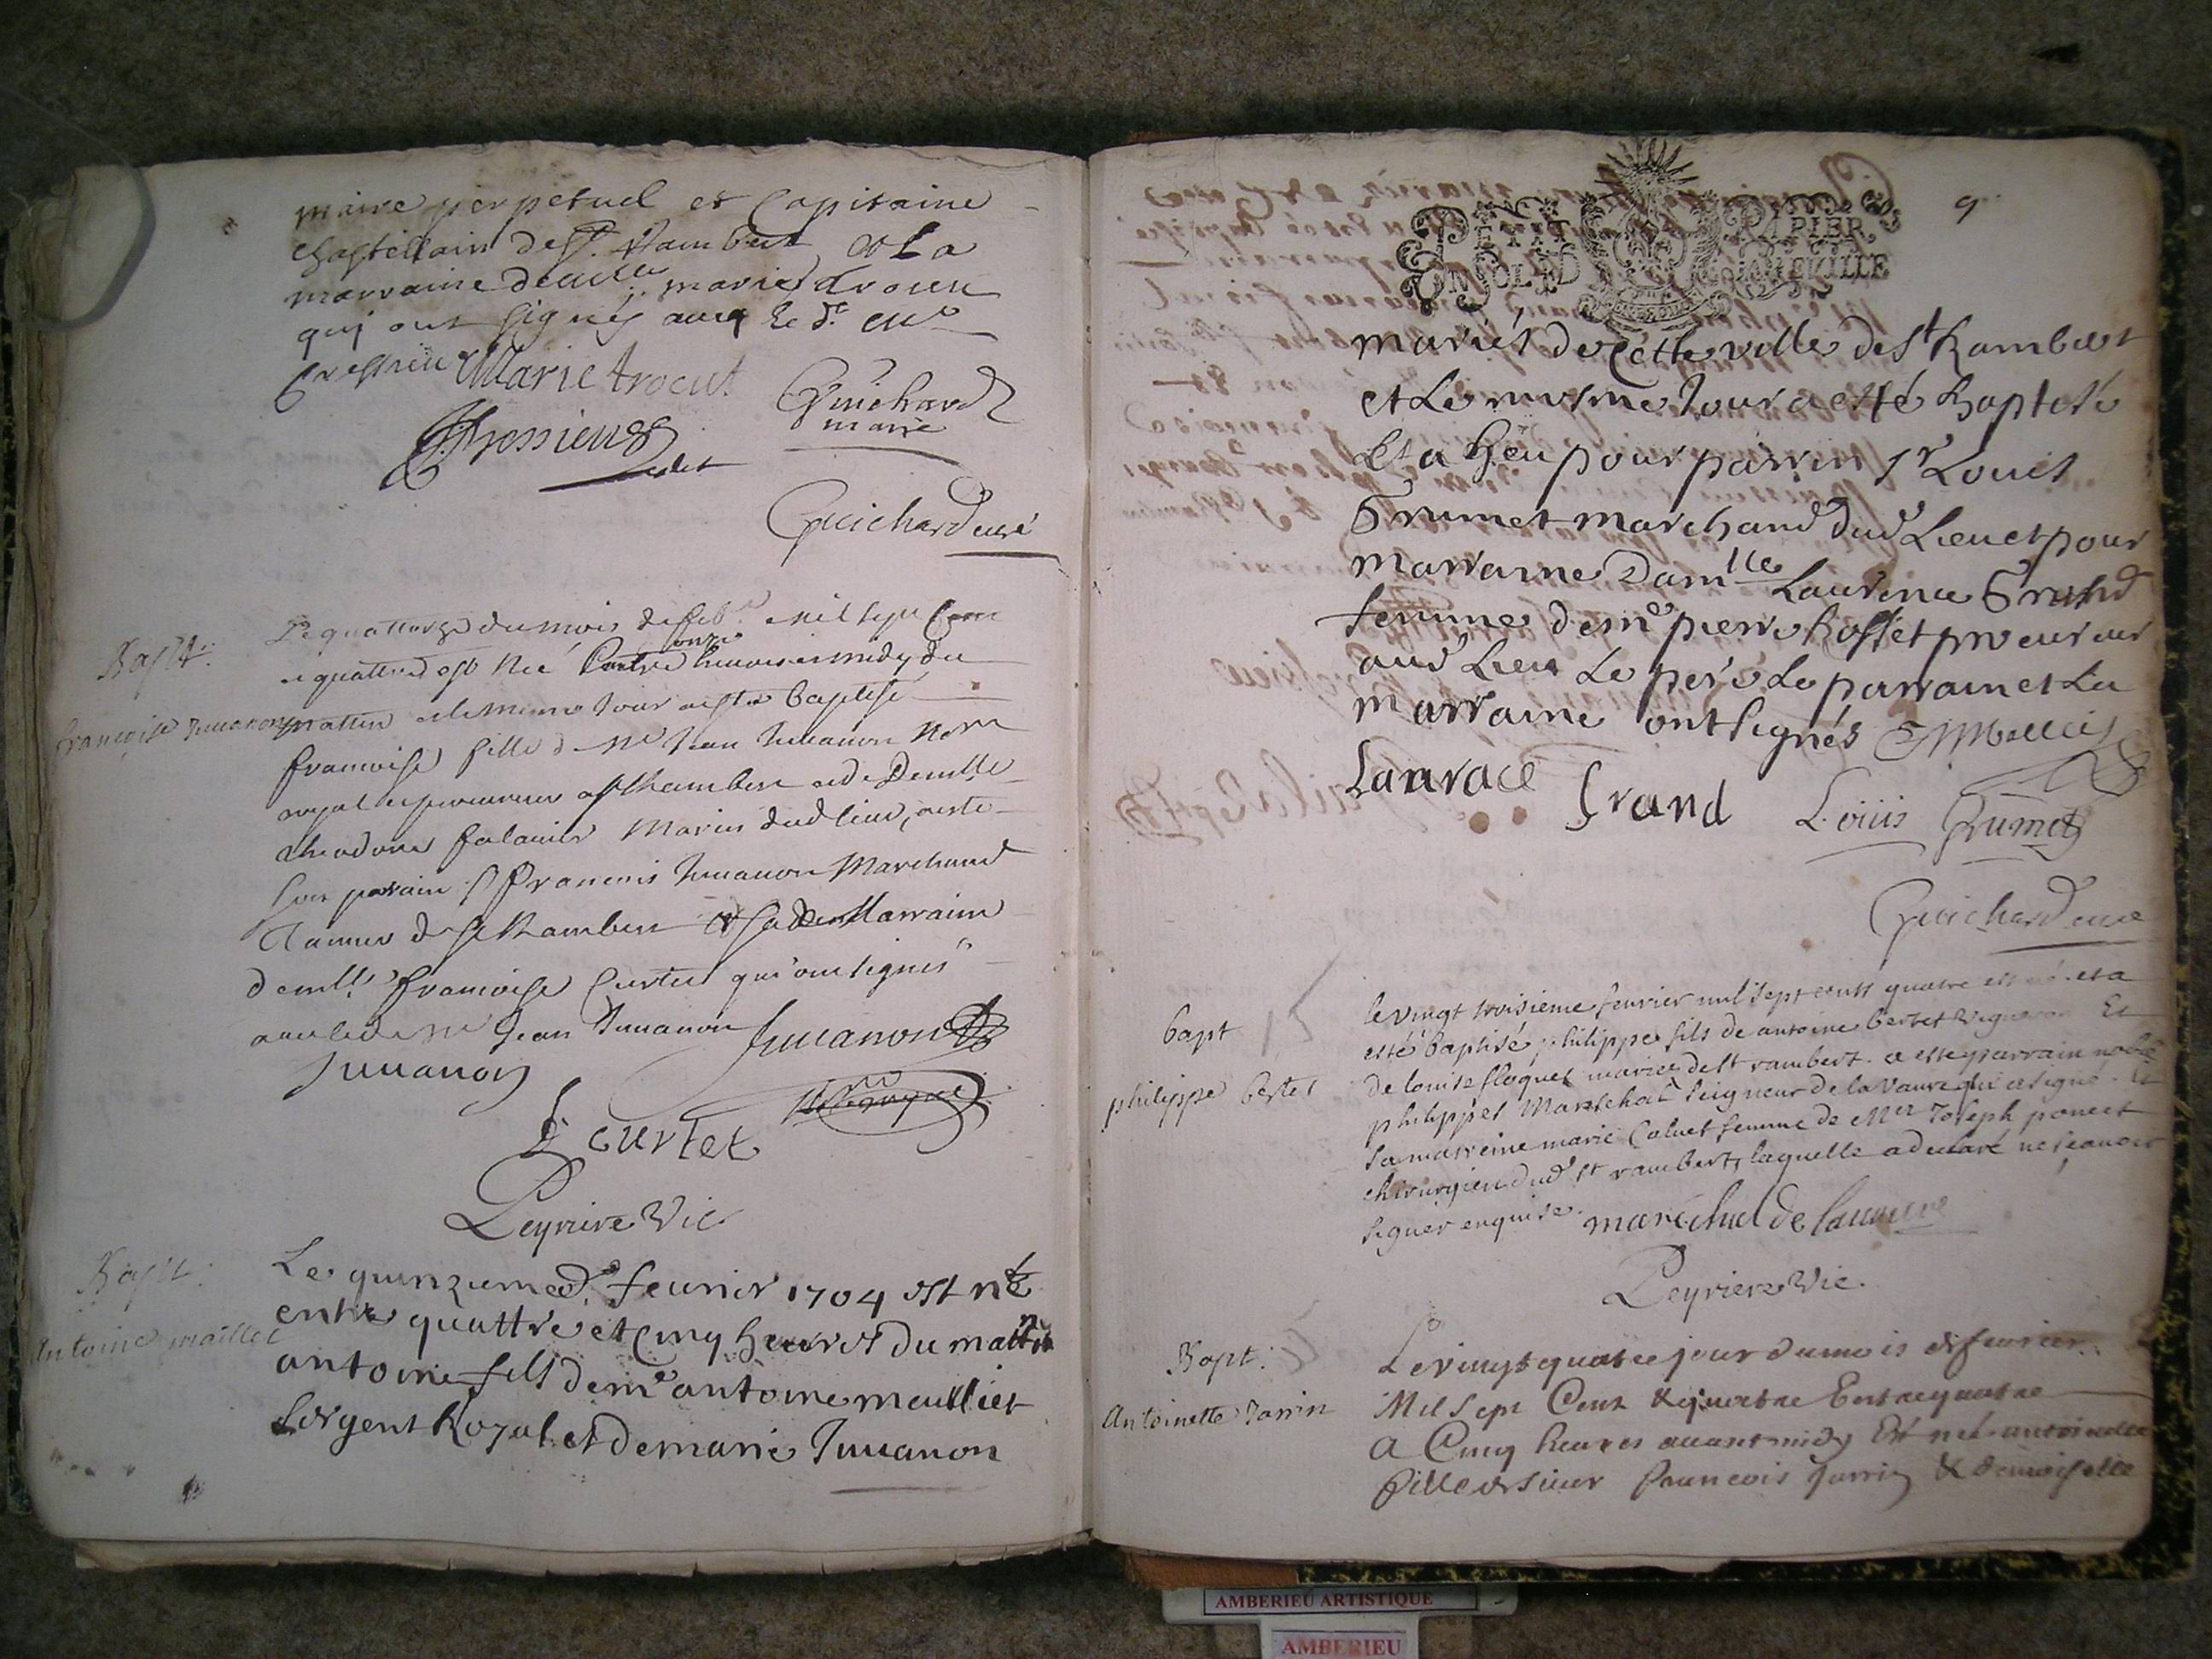 maire perpetuel et Capitaine
chastellain de St. Rambert & La
marraine demlle marie trocu
qui ont signés avec le dt. curé
Cressieu Marie trocut
Guichard
maire
Cressieux
cadet
Guichard curé
Bapt.
francoise Juvanon
Le quattorze du mois de febr. mil sept Cent
quattre est née onze heures midy du
mattin et le mesme Jour a esté baptisé
francoise fille de Me Jean Juvanon
royal et procureur a St Rambert et de Demlle
mariés dudt lieu, a esté
son parain Sr francois Juvanon Marchand
Tanneur de St Rambert & sa Marraine
demlle francoise Curtet qui ont signés
avec led. Me Jean Juvanon Juvanon
Juvanon
F Curtet
Peyriere Vic.
Bapt.
Antoine maillet
Le quinziemed. feurier 1704 est né
entre quattre et Cinq heures du mattin
antoine fils de me antoine maillet
sergent Royal et de marie Juvanon
9
PETIT PAPIER
mariés de Cette ville de St Rambert
et Le mesme Jour a esté Baptisé
Et a heu pour parrin sr Louis
Grumet marchand dud Lieu et pour
marraine Damlle Laurence Grand
femme de me pierre Rosset procureur
aud Lieu Le pere Le parrain et La
marraine ont signés
Laurace Grand Loüis Grumet
Guichard curé
bapt
philippe bertet
le vingt troisieme feurier mil sept cents quatre est né et a
esté baptisé philippe fils de antoine bertet vigneron Et
de louise floquet mariez de st rambert. a esté parrain noble
philippes Mareschal seigneur de la Vaure qui a signé. Et
sa marreine marie Caluet femme de Mer Joseph poncet
chirurgien dud st rambert, laquelle a declaré ne sçauoir
signer enquise. maréchal de lauaure
Peyriere Vic.
Bapt.
Antoinette Janin
Le vingt quatre jour du mois de feurier
Mil sept Cent & quatre Entre quatre
a Cinq heures auant midy Est née antoinette
fille de sieur francois Janin & demoiselle
AMBERIEU ARTISTIQUE
AMBERIEU